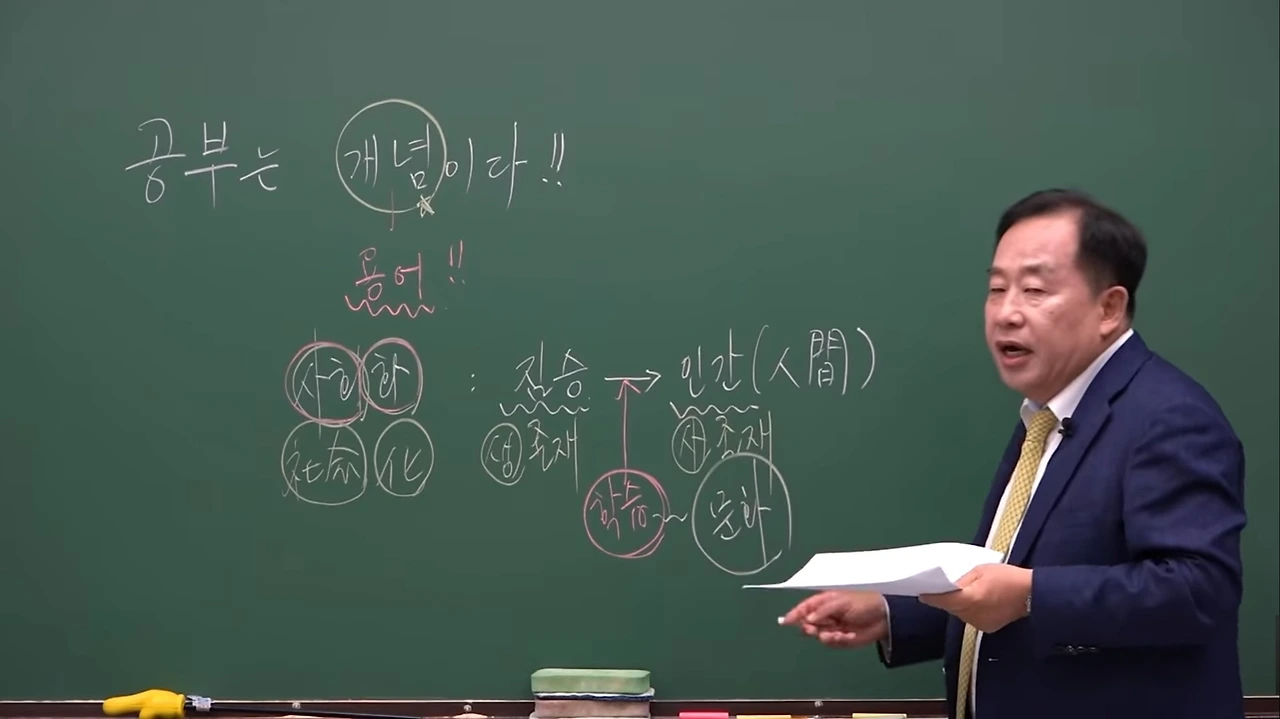 공부는 개념이다!!
용어!!
사회화 : 짐승 → 인간(人間)
생존재 사존재
학습 ~ 문화